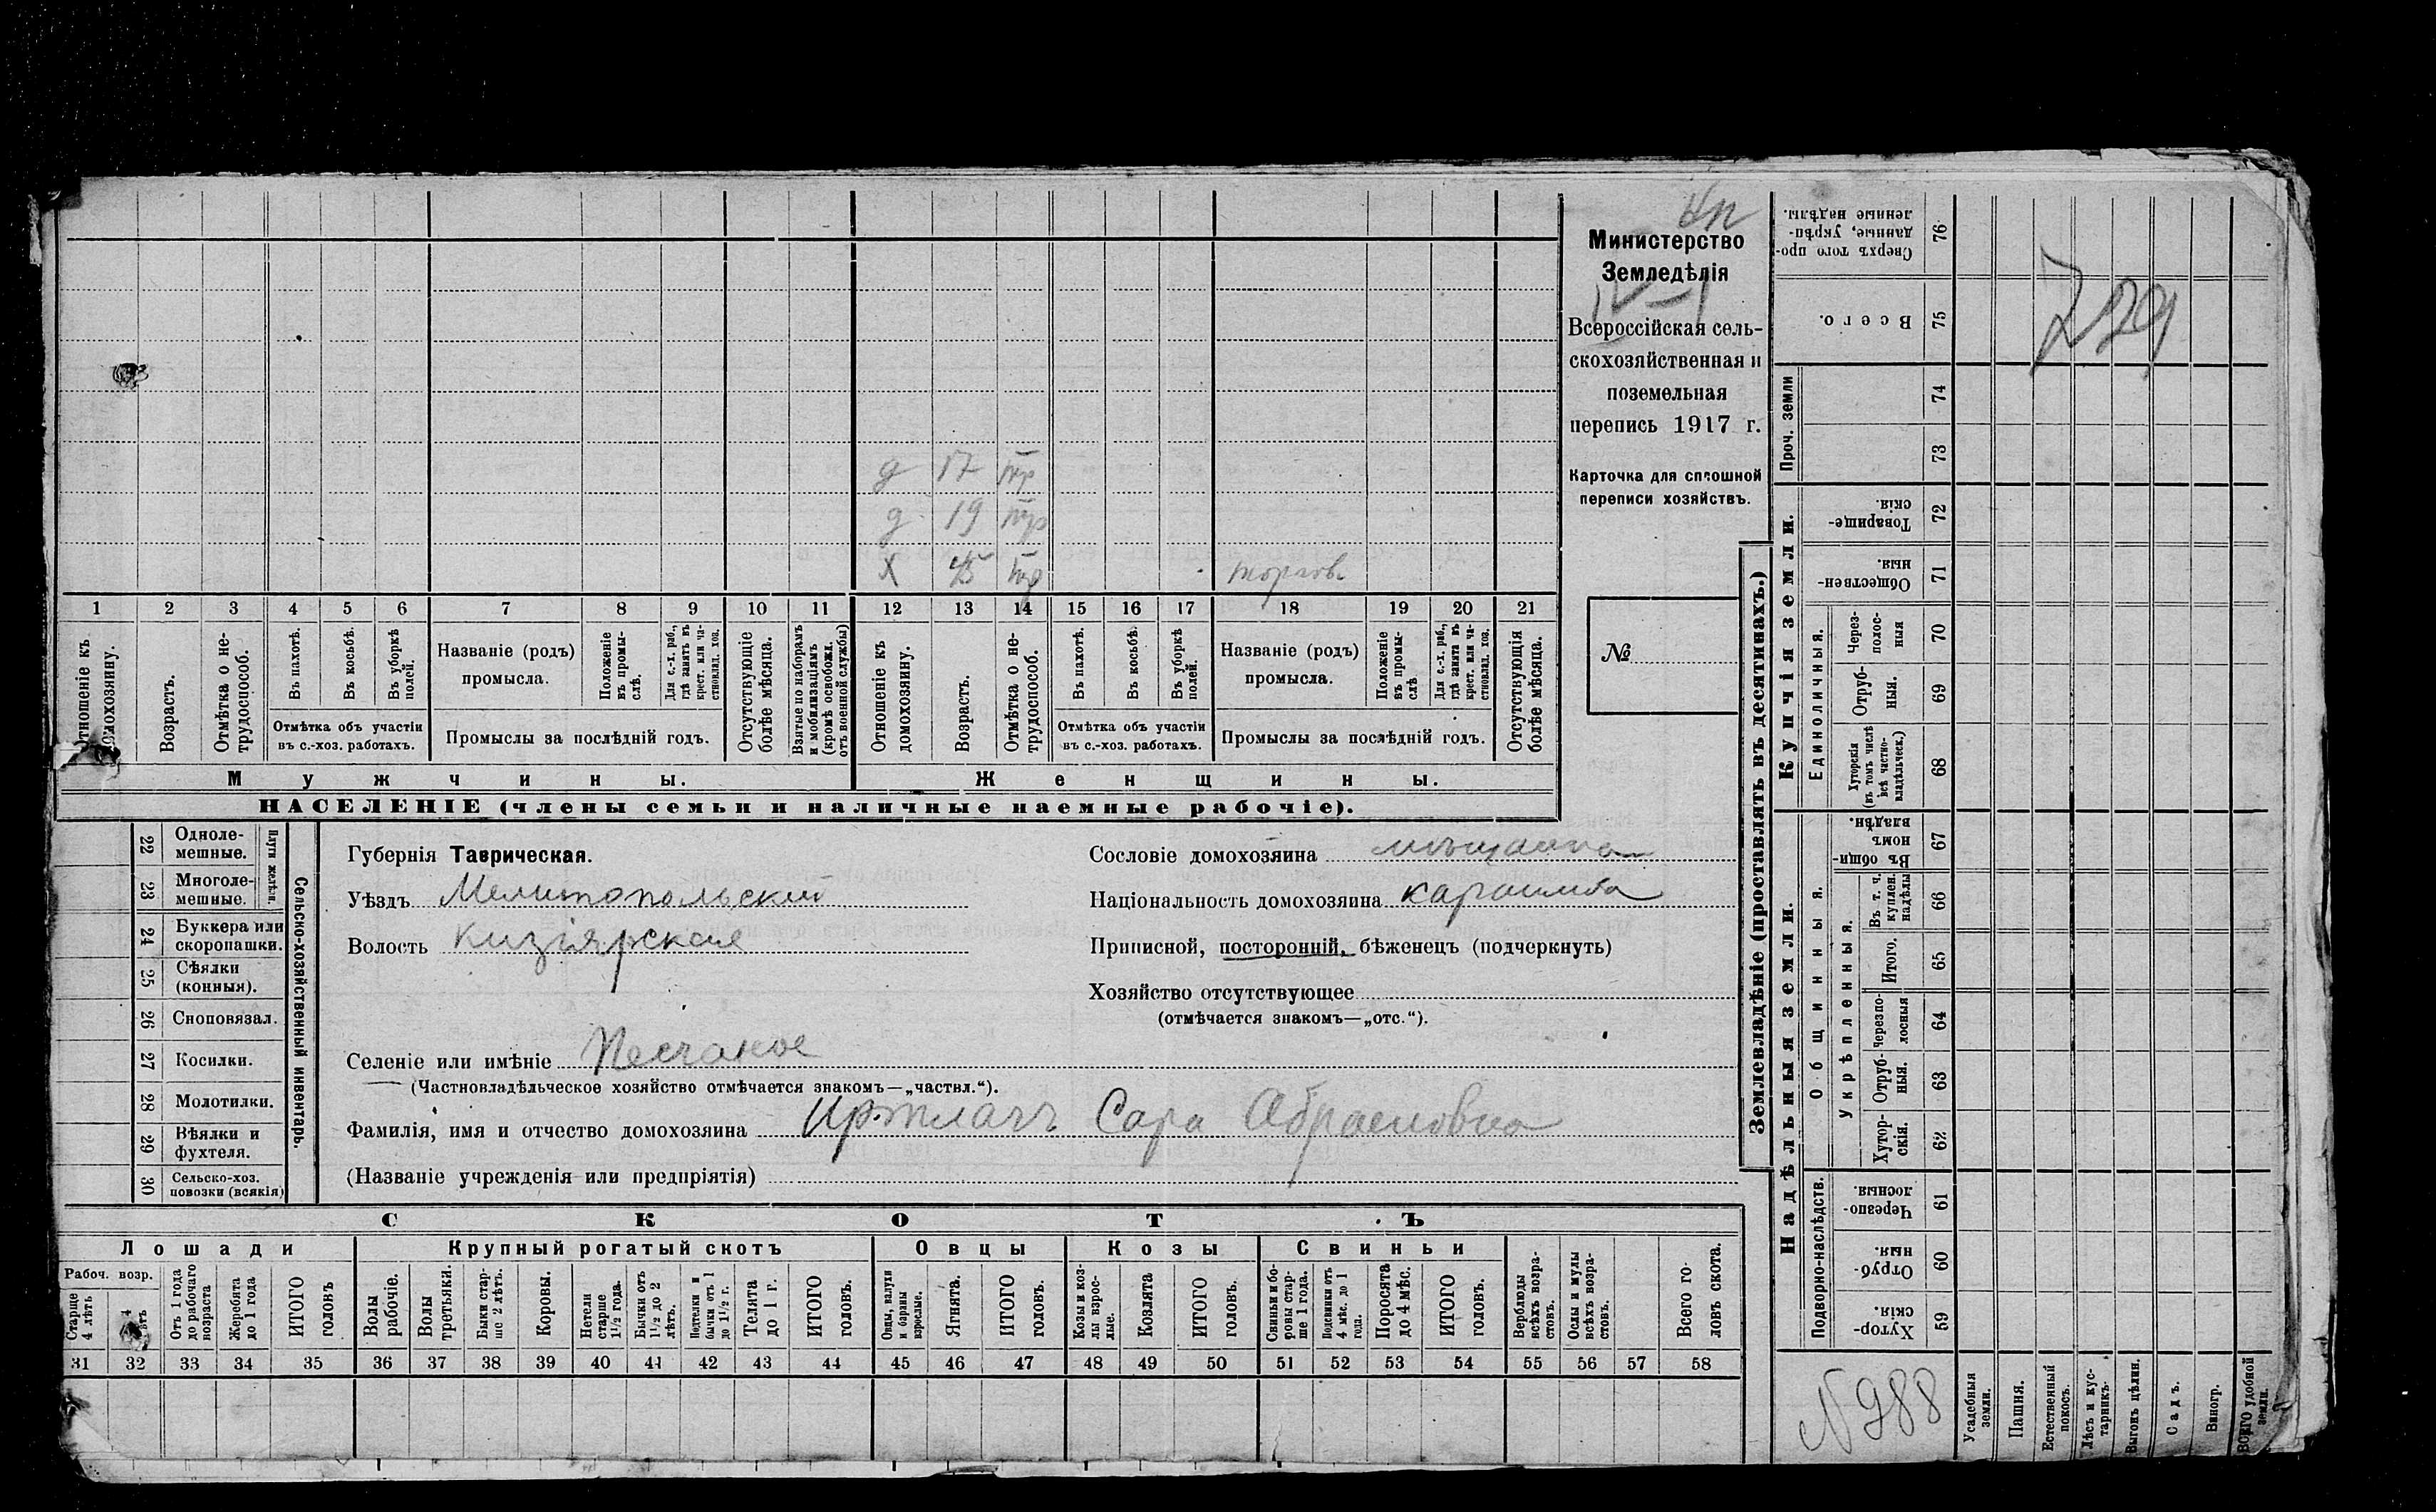 Кп
Министерство
Земледѣлія
IV-1
Всероссійская сель-
скохозяйственная и
поземельная
перепись 1917 г.
Карточка для сплошной
переписи хозяйствъ.
№
д 17 тр
д 19 тр
х 45 тр торгов.
1 2 3 4 5 6 7 8 9 10 11 12 13 14 15 16 17 18 19 20 21
Отношеніе къ домохозяину.
Возрастъ.
Отмѣтка о не-трудоспособ.
Въ пахотѣ.
Въ косьбѣ.
Въ уборкѣ полей.
Отмѣтка объ участіи
въ с.-хоз. работахъ.
Названіе (родъ)
промысла.
Положеніе въ промы-слѣ.
Для с.-х. раб., гдѣ занятъ въ крест. или ча-стновлад. хоз.
Промыслы за послѣдній годъ.
Отсутствующіе болѣе мѣсяца.
Взятые по наборамъ и мобилизаціямъ (кромѣ освобожд. отъ военной службы)
Отношеніе къ домохозяину.
Возрастъ.
Отмѣтка о не-трудоспособ.
Въ пахотѣ.
Въ косьбѣ.
Въ уборкѣ полей.
Отмѣтка объ участіи
въ с.-хоз. работахъ.
Названіе (родъ)
промысла.
Положеніе въ промы-слѣ
Для с.-х. раб., гдѣ занята въ крест. или ча-стновлад. хоз.
Промыслы за послѣдній годъ.
Отсутствующія болѣе мѣсяца.
Мужчины.
Женщины.
НАСЕЛЕНІЕ (члены семьи и наличные наемные рабочіе).
Сельско-хозяйственный инвентарь.
Плуги желѣзн.
22 Одноле-мешные.
23 Многоле-мешные.
24 Буккера или скоропашки.
25 Сѣялки (конныя).
26 Сноповязал.
27 Косилки.
28 Молотилки.
29 Вѣялки и фухтеля.
30 Сельско-хоз. повозки (всякія)
Губернія Таврическая.
Уѣздъ Мелитопольский
Волость Кизіярская
Селеніе или имѣніе Песчаное
(Частновладѣльческое хозяйство отмѣчается знакомъ—„частвл.“).
Фамилія, имя и отчество домохозяина Иртлачъ Сара Абрамовна
(Названіе учрежденія или предпріятія)
Сословіе домохозяина мѣщанка
Національность домохозяина караимка
Приписной, посторонній, бѣженецъ (подчеркнуть)
Хозяйство отсутствующее
(отмѣчается знакомъ—„отс.“).
СКОТЪ
Лошади
Крупный рогатый скотъ
Овцы
Козы
Свиньи
Рабоч. возр.
Старше 4 лѣтъ
Отъ 1 года до рабочаго возраста
Жеребята до 1 года
ИТОГО головъ
Волы рабочіе.
Волы третьяки.
Быки стар-ше 2 лѣтъ.
Коровы.
Нетели старше 1½ года.
Бычки отъ 1½ до 2 лѣтъ.
Подтелки и бычки отъ 1 до 1½ г.
Телята до 1 г.
ИТОГО головъ.
Овцы, валухи и бараны взрослые.
Ягнята.
ИТОГО головъ.
Козы и коз-лы взрос-лые.
Козлята
ИТОГО головъ.
Свиньи и бо-ровы стар-ше 1 года.
Подсвинки отъ 4 мѣс. до 1 года.
Поросята до 4 мѣс.
ИТОГО головъ.
Верблюды всѣхъ возра-стовъ.
Ослы и мулы всѣхъ возра-стовъ.
Всего го-ловъ скота.
31 32 33 34 35 36 37 38 39 40 41 42 43 44 45 46 47 48 49 50 51 52 53 54 55 56 57 58
Землевладѣніе (проставлять въ десятинахъ.)
Надѣльныя земли.
Купчія земли.
Проч. земли
Подворно-наслѣдств.
Общинныя.
Укрѣпленныя.
Единоличныя.
Сверхъ того про-данные, укрѣп-ленные надѣлы. 76
Всего. 75
74
73
Товарище-скія. 72
Обществен-ныя. 71
Через-полос-ныя 70
Отруб-ныя. 69
Хуторскія (въ томъ числѣ всѣ частно-владѣльческ.) 68
Въ общи-номъ владѣн. 67
Въ т. ч. куплен. надѣлы 66
Итого. 65
Черезпо-лосныя 64
Отруб-ныя. 63
Хутор-скія. 62
Черезпо-лосныя. 61
Отруб-ныя. 60
Хутор-скія. 59
Усадебныя земли.
Пашня.
Естественный покосъ.
Лѣсъ и кус-тарникъ.
Выгонъ цѣлин.
Садъ.
Виногр.
ВСЕГО удобной земли.
N 988